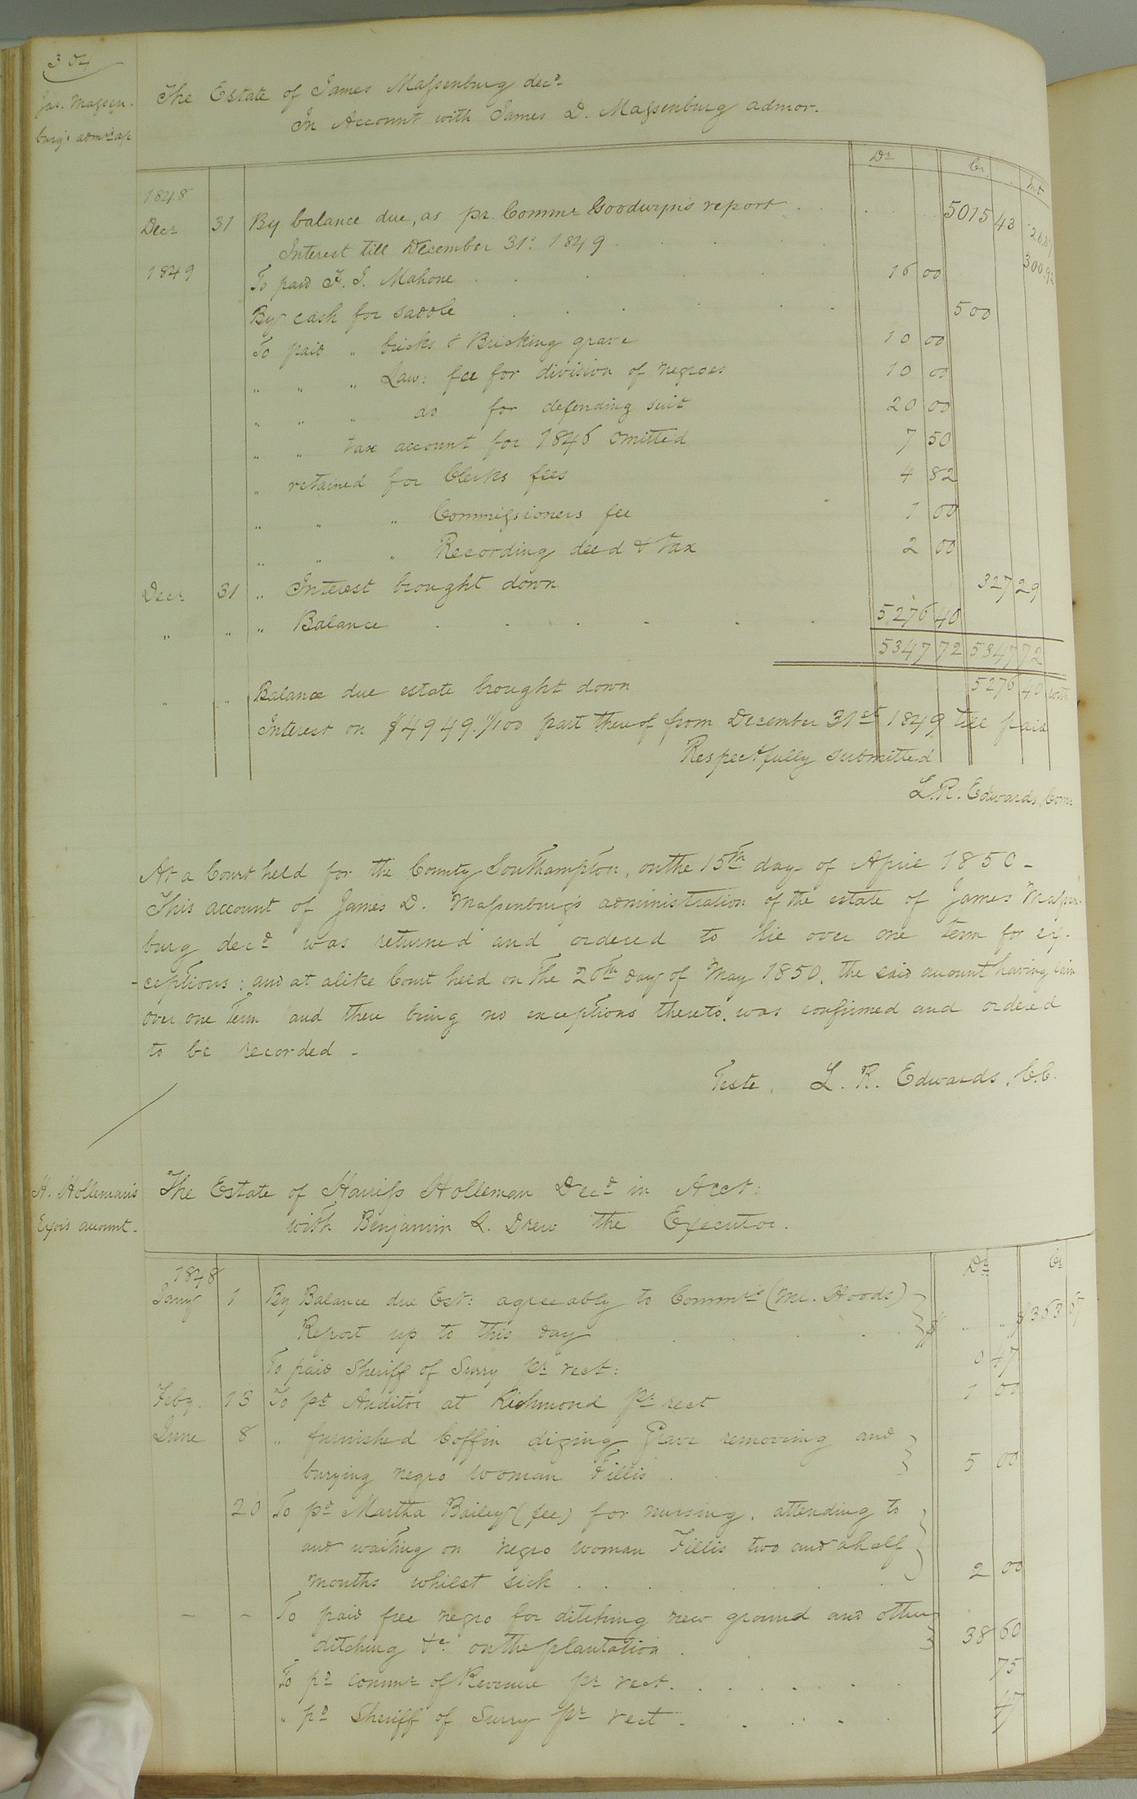 304
Jas. Massen-
burg's admr a/c
The Estate of James Massenburg decd
In Account with James D. Massenburg admor.
Dr Cr Int
1848
Decr 31 By balance due, as pr. Commr Goodwyn's report 5015 43
Interest till December 31st 1849 300 92
1849 To paid F. J. Mahone 16 00
By cash for saddle 5 00
To paid " bricks & Bricking grave 10 00
" " " Law: fee for division of negroes 10 00
" " " do for defending suit 20 00
" " tax account for 1846 omitted 7 50
" retained for Clerks fees 4 82
" " " Commissioners fee 1 00
" " " Recording deed & tax 2 00
Decr 31 " Interest brought down 327 29
" " " Balance 5276 40
5347 72 5347 72
" " Balance due estate brought down 5276 40 with
Interest on $4949.1/100 part thereof from December 31st 1849 till paid
Respectfully submitted
L. R. Edwards, Comr
At a Court held for the County Southampton, on the 15th day of April 1850 -
This account of James D. Massenburg's administration of the estate of James Massen-
burg decd was returned and ordered to lie over one term for ex-
-ceptions: and at alike Court held on the 20th day of May 1850. the said amount having lain
over one Term and there being no exceptions thereto, was confirmed and ordered
to be recorded -
Teste, L. R. Edwards, C.C.
H. Holleman's
Exors account.
The Estate of Hariss Holleman Decd in Acct:
with Benjamin L. Drew the Executor.
Dr Cr
1848
Jany 1 By Balance due Est: agreeably to Commrs (Mr. Hoods)
Report up to this day $ $363 07
To paid Sheriff of Surry pr rect: 0 47
Feby. 13 To pd Auditor at Richmond pr rect 1 00
June 8 " furnished Coffin diging Grave removing and
burying negro woman Fillis 5 00
20 To pd Martha Bailey (fee) for nursing, attending to
and waiting on negro woman Fillis two and ahalf
months whilst sick 2 00
- - To paid free negro for ditching new ground and other
ditching &c on the plantation 38 60
To pd commr of Revenue pr rect. 75
" pd Sheriff of Surry pr rect 47